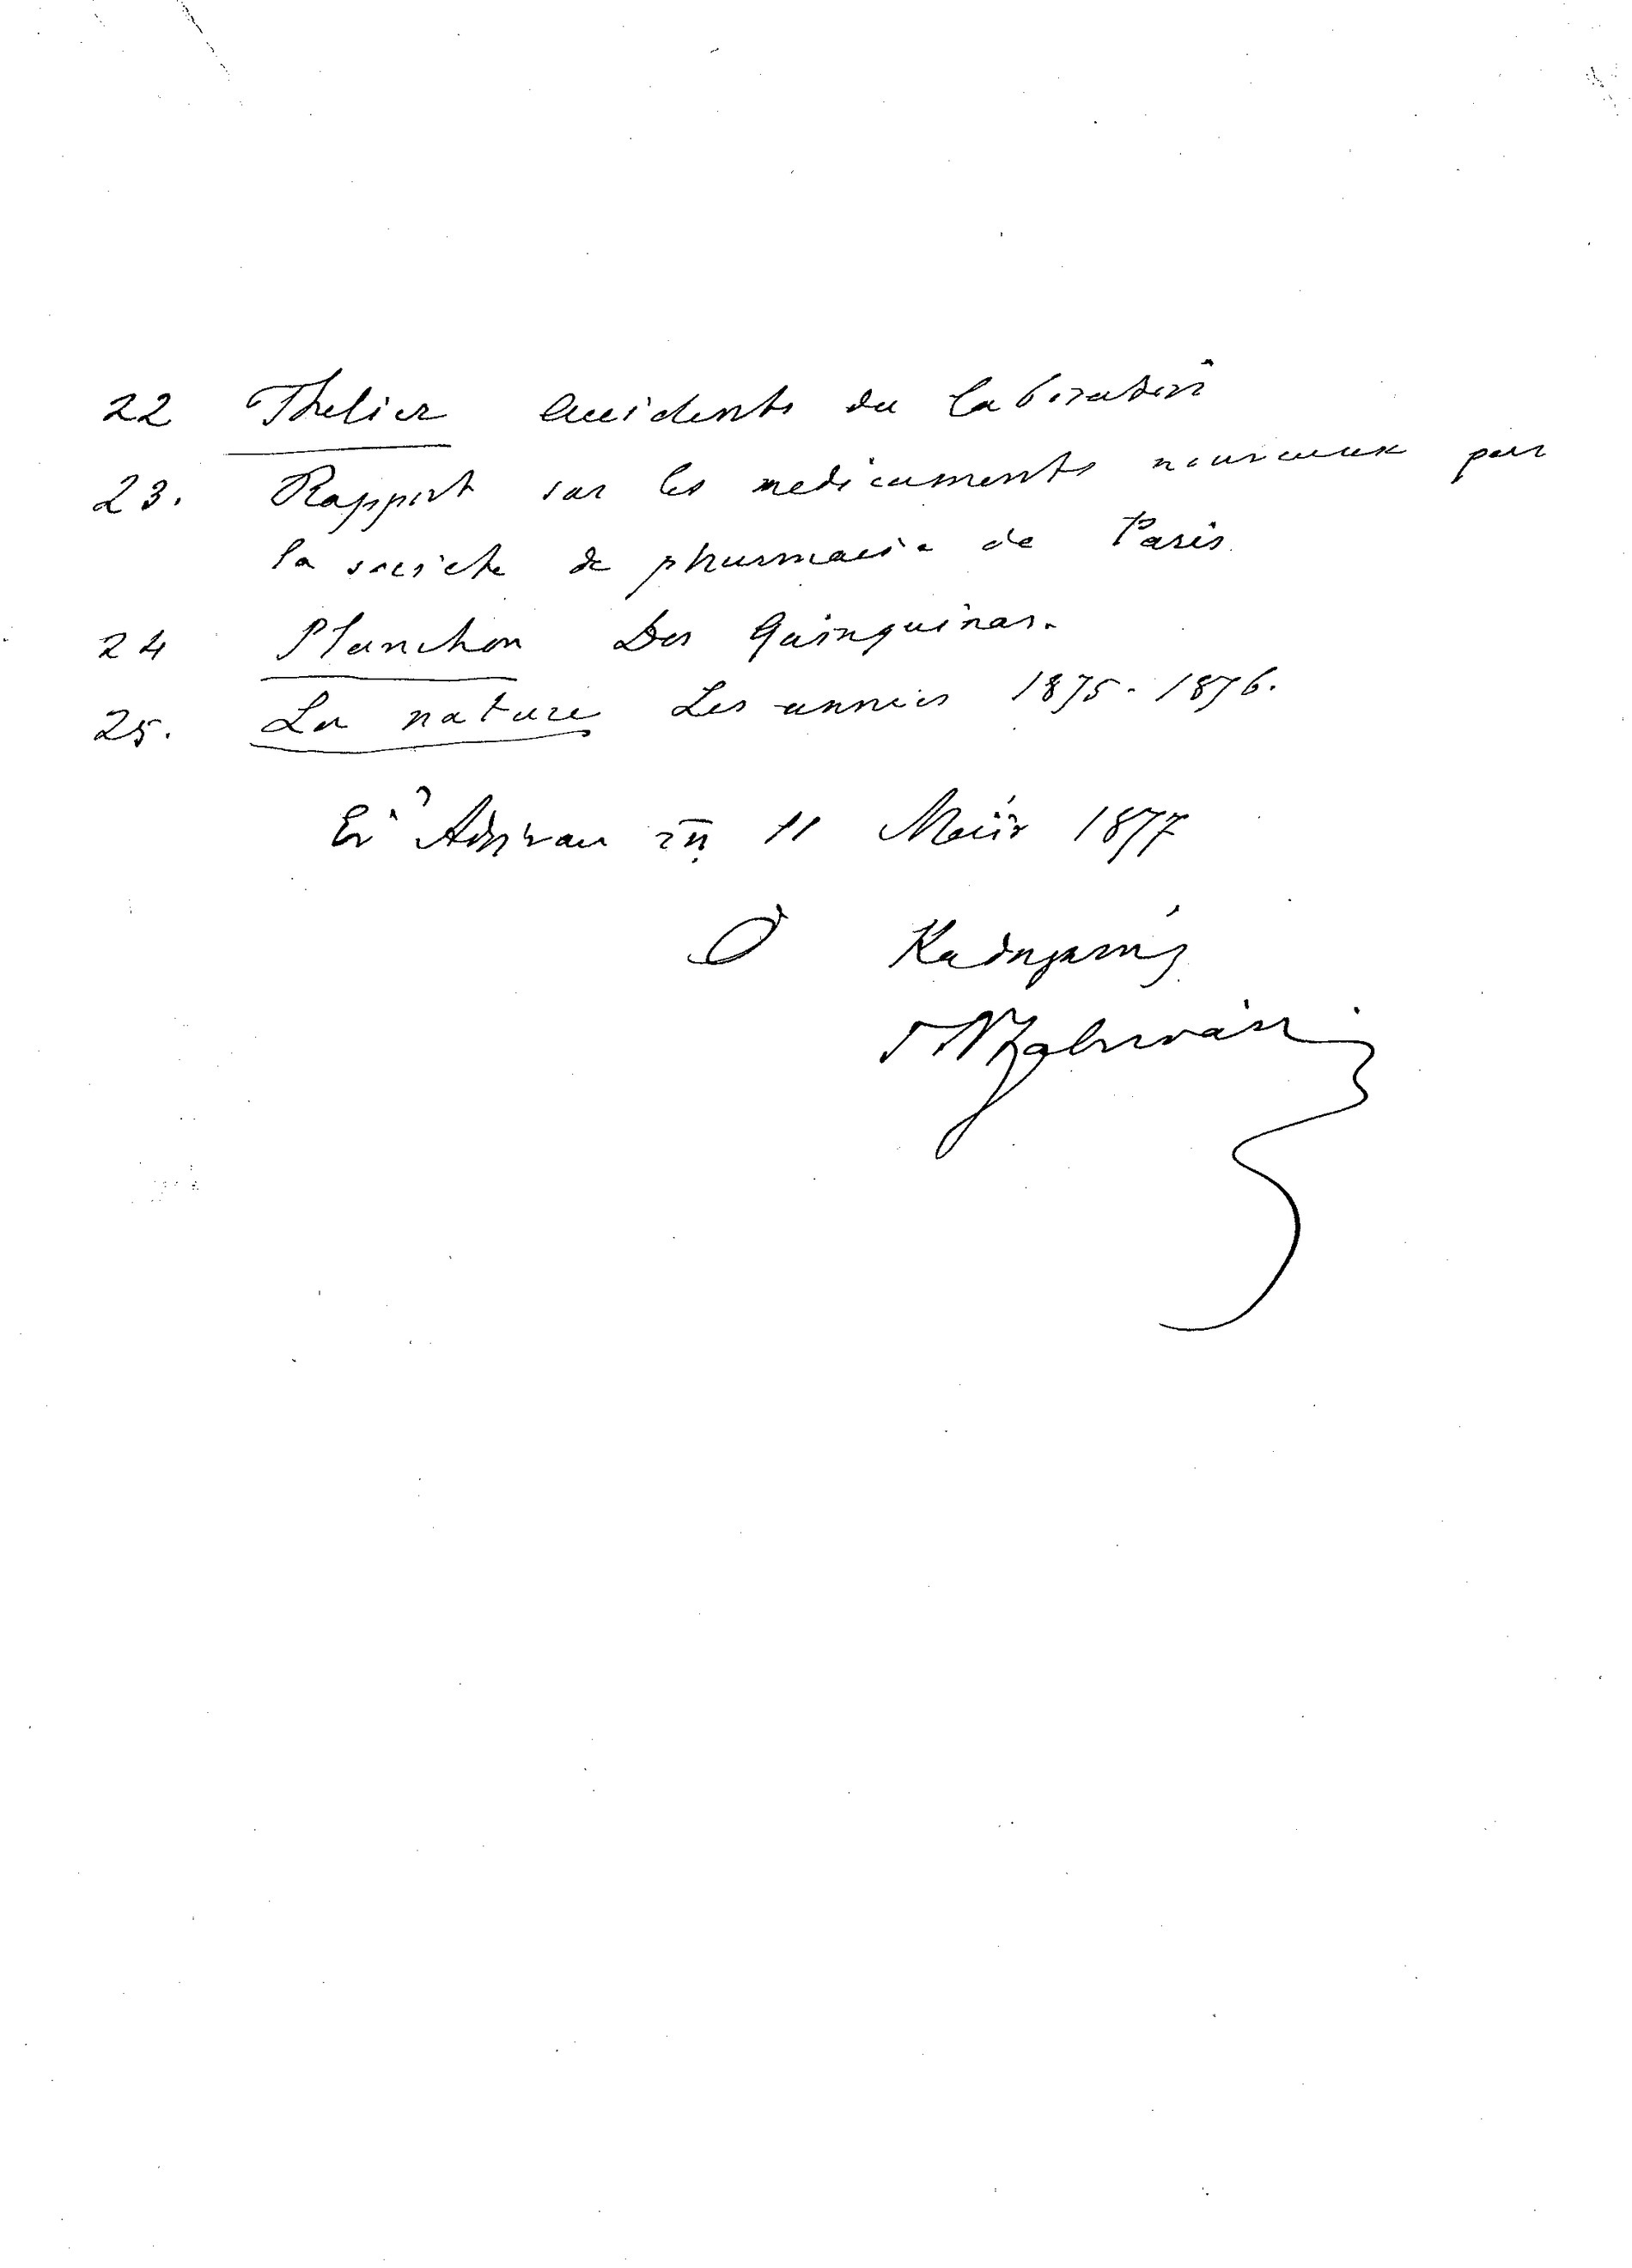 22 Thelier accidents du laboratoire
23. Rapport sur les medicaments nouveaux par
la societe de pharmacie de Paris.
24 Planchon Des Quinquinas.
25. La nature Les années 1875-1876.
Ἐν Ἀθήναις τῇ 11 Μαΐου 1877
Ὁ Καθηγητής